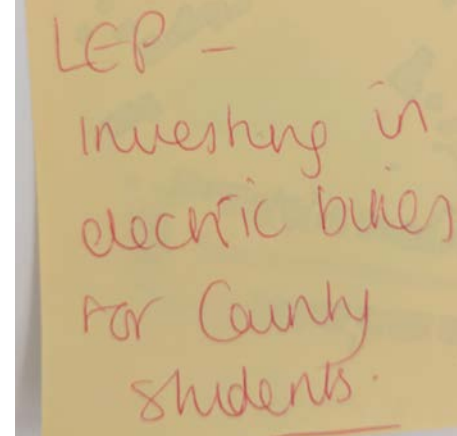 LEP -
Investing in
electric bikes
for County
students.